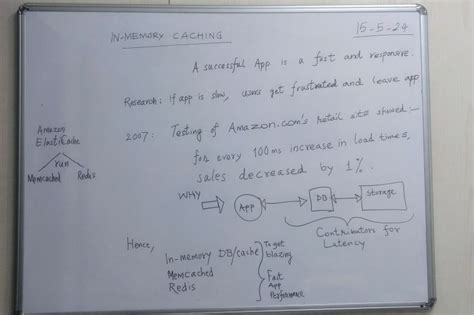 IN-MEMORY CACHING
15-5-24
A successful App is a fast and responsive.
Research: if app is slow, users get frustrated and leave app
2007: Testing of Amazon.com's retail site showed:-
for every 100ms increase in load times,
sales decreased by 1%.
Amazon
ElastiCache
run
Memcached Redis
WHY
App
DB
Storage
Contributors for
Latency
Hence,
In-memory DB/cache
Memcached
Redis
To get
blazing
Fast
App
Performance